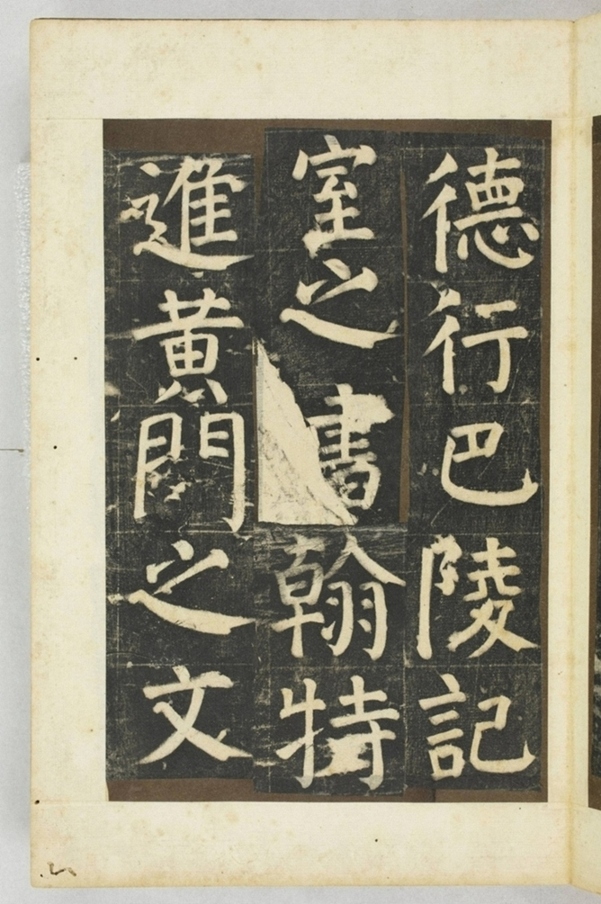 德行巴陵記
室之書翰特
進黃門之文